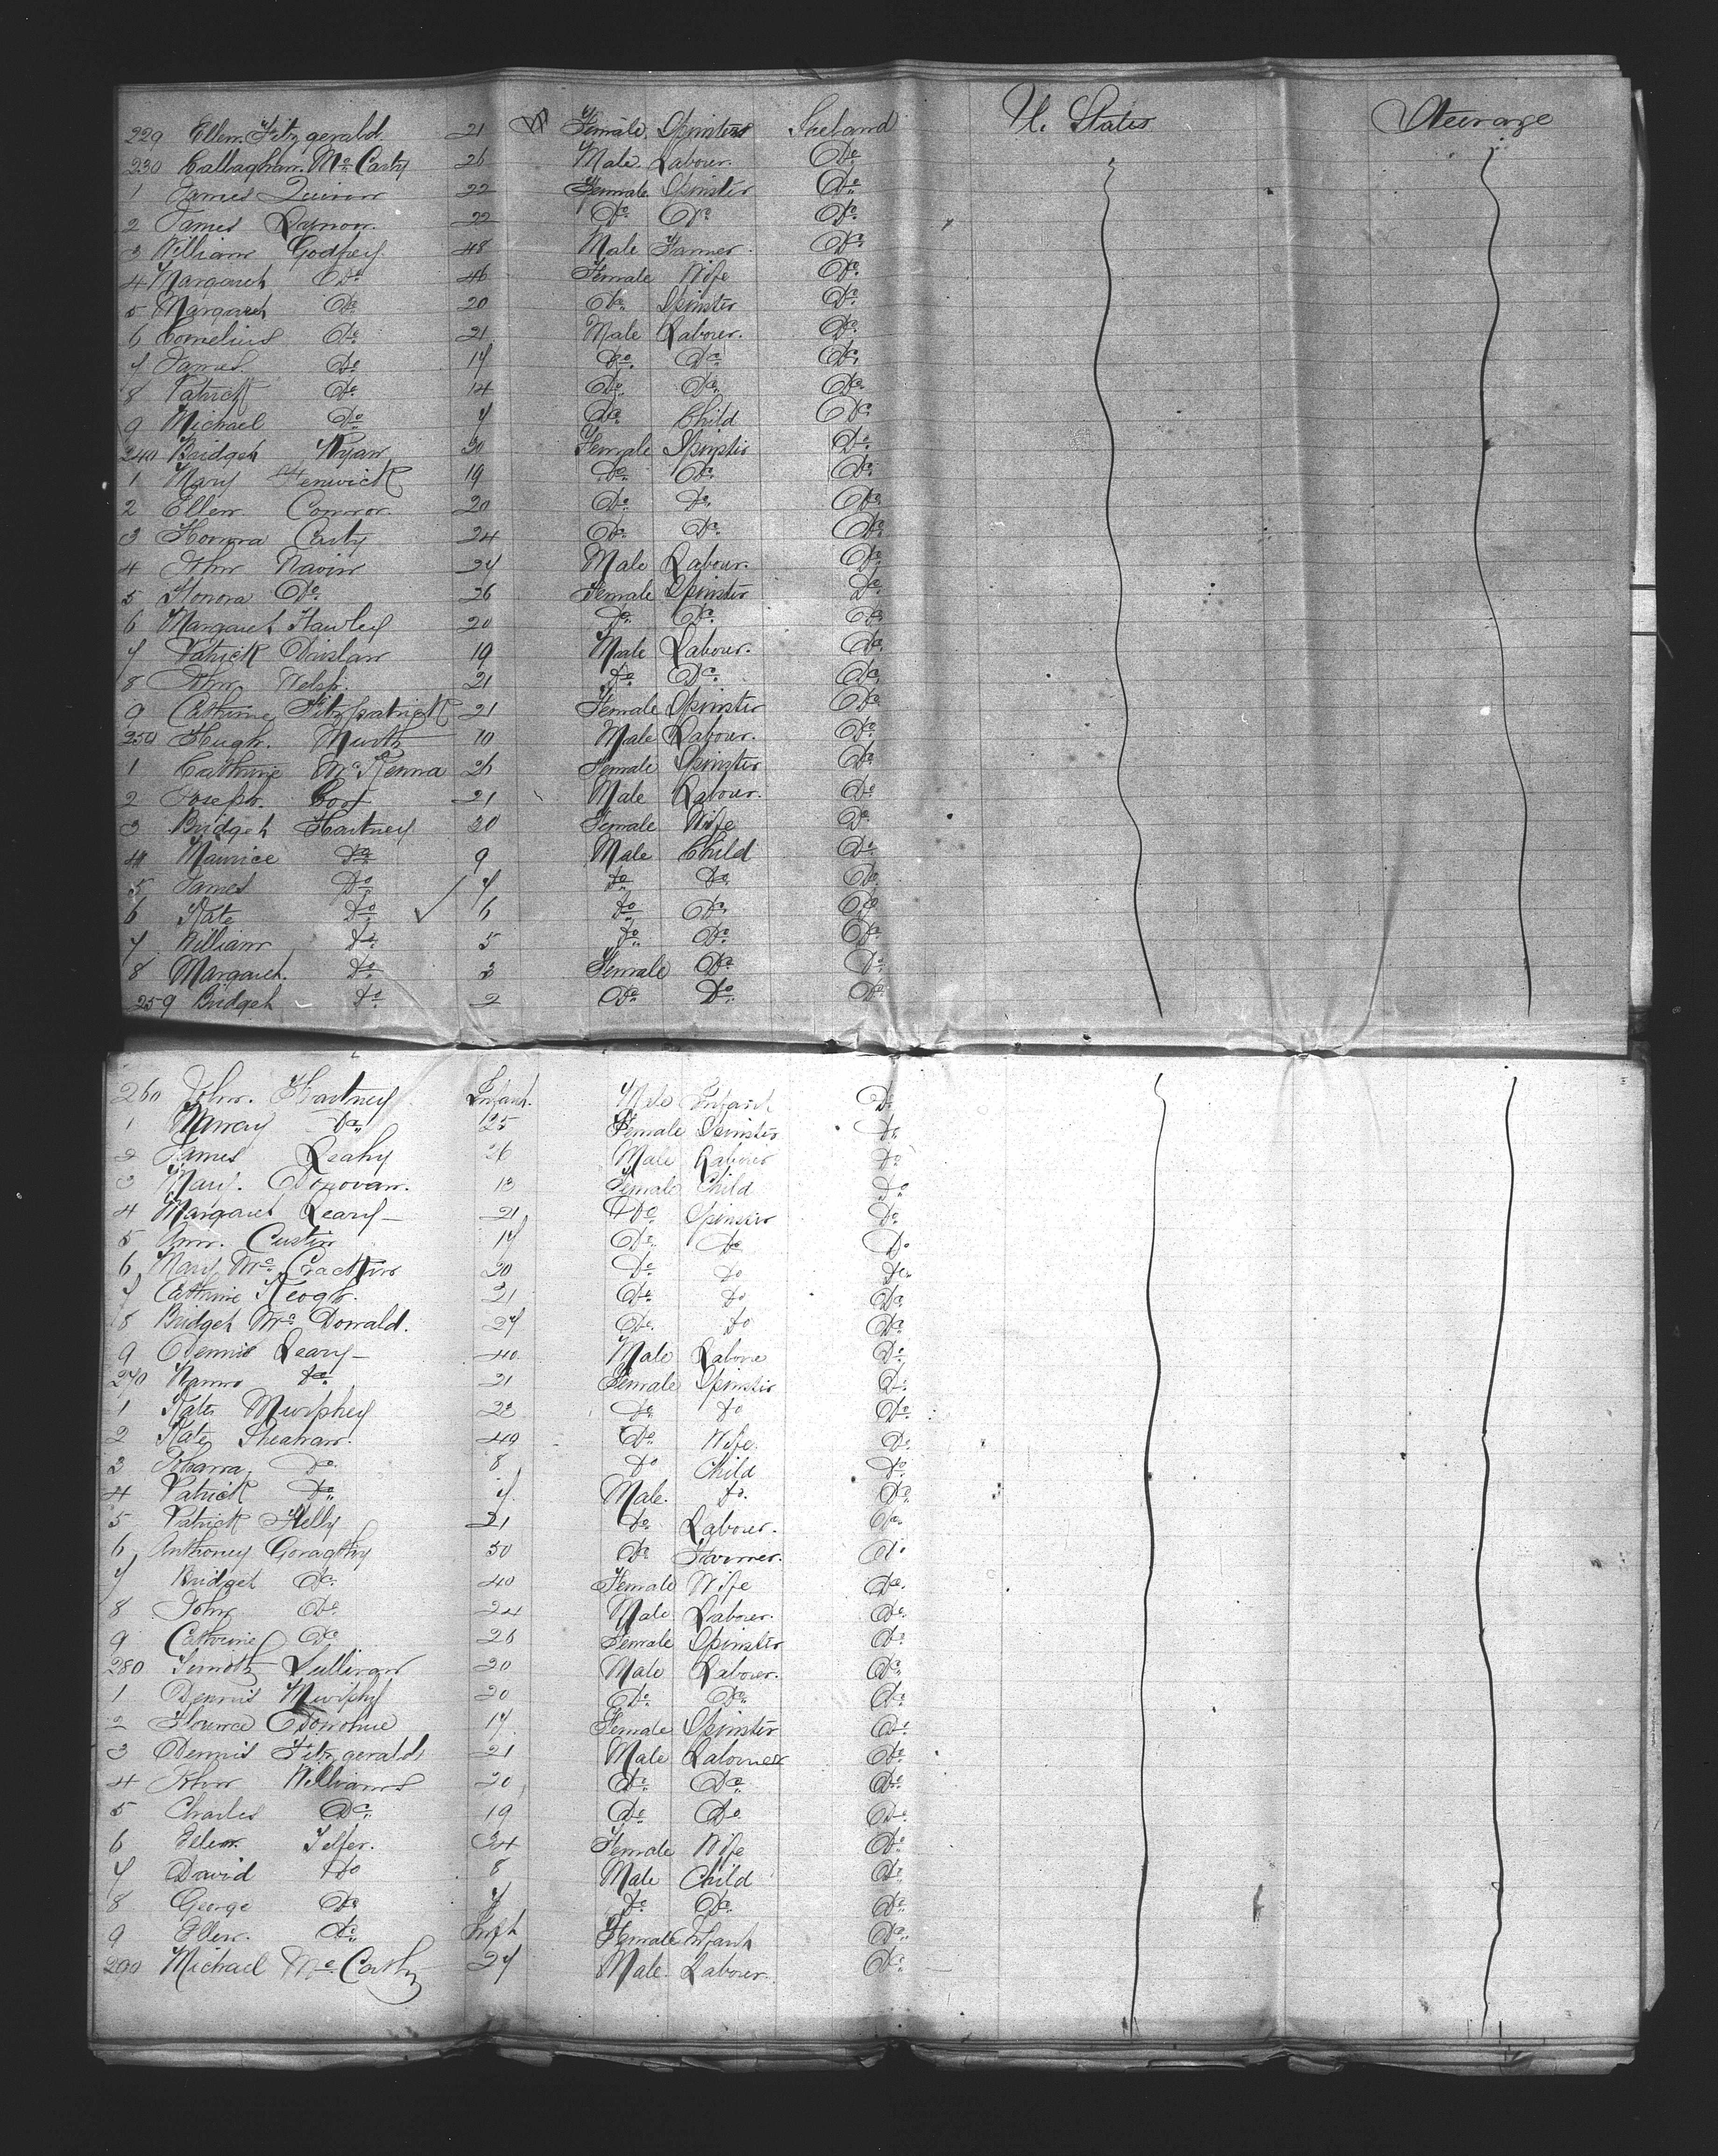 229 Ellen Fitzgerald 21 Female Spinster Ireland U. States Steerage
230 Callaghan McCarty 26 Male Labour. Do
1 James Quinn 22 Female Spinster Do
2 James 22 Do Do Do
3 William Godfrey 48 Male Farmer Do
4 Margaret Do 46 Female Wife Do
5 Margaret Do 20 Do Spinster Do
6 Cornelius Do 21 Male Labour. Do
7 James Do 17 Do Do Do
8 Patrick Do 14 Do Do Do
9 Michael Do 7 Do Child Do
240 Bridget Ryan 20 Female Spinster Do
1 Mary Fenwick 19 Do Do Do
2 Ellen Connor. 20 Do Do Do
3 Honora Carty 24 Do Do Do
4 John Navin 27 Male Labour. Do
5 Honora Do 26 Female Spinster Do
6 Margaret Hawley 20 Do Do Do
7 Patrick 19 Male Labour. Do
8 John Welsh. 21 Do Do Do
9 Cathrine Fitzpatrick 21 Female Spinster Do
250 Hugh. 10 Male Labour. Do
1 Cathrine McKenna 26 Female Spinster Do
2 Joseph. 21 Male Labour. Do
3 Bridget Hartney 30 Female Wife Do
4 Maurice Do 9 Male Child Do
5 James Do 7 Do Do Do
6 Kate Do 6 Do Do Do
7 William Do 5 Do Do Do
8 Margaret. Do 3 Female Do Do
259 Bridget Do 2 Do Do Do
260 John. Hartney Infant. Male Infant Do
1 Do 25 Female Spinster Do
2 James Leahy 26 Male Labour Do
3 Mary. ODonovan. 13 Female Child Do
4 Margaret Leary 21 Do Spinster Do
5 Ann. Custin 17 Do Do Do
6 Mary Mc 20 Do Do Do
7 Cathrine Keogh. 21 Do Do Do
8 Bridget McDonald. 27 Do Do Do
9 Dennis Leary 40 Male Labore Do
270 Do 21 Female Spinster Do
1 Kate Murphey 23 Do Do Do
2 Kate Sheahan. 49 Do Wife Do
3 Johanna Do 8 Do Child Do
4 Patrick Do 7 Male. Do Do
5 Patrick Kelly 21 Do Labour. Do
6 Anthoney Goraghty 50 Do Farmer. Do
7 Bridget Do 40 Female Wife Do
8 John Do 24 Male Labour. Do
9 Cathrine Do 26 Female Spinster Do
280 Timothy Sullivan 20 Male Labour. Do
1 Dennis Murphy 20 Do Do Do
2 Florence ODonohue 17 Female Spinster Do
3 Dennis Fitzgerald 21 Male Labourer Do
4 John Williams 20 Do Do Do
5 Charles Do 19 Do Do Do
6 Ellen. Telfer. 34 Female Wife Do
7 David Do 8 Male Child Do
8 George Do 7 Do Do Do
9 Ellen. Do Inft Female Infant Do
290 Michael McCarthy 27 Male Labour. Do